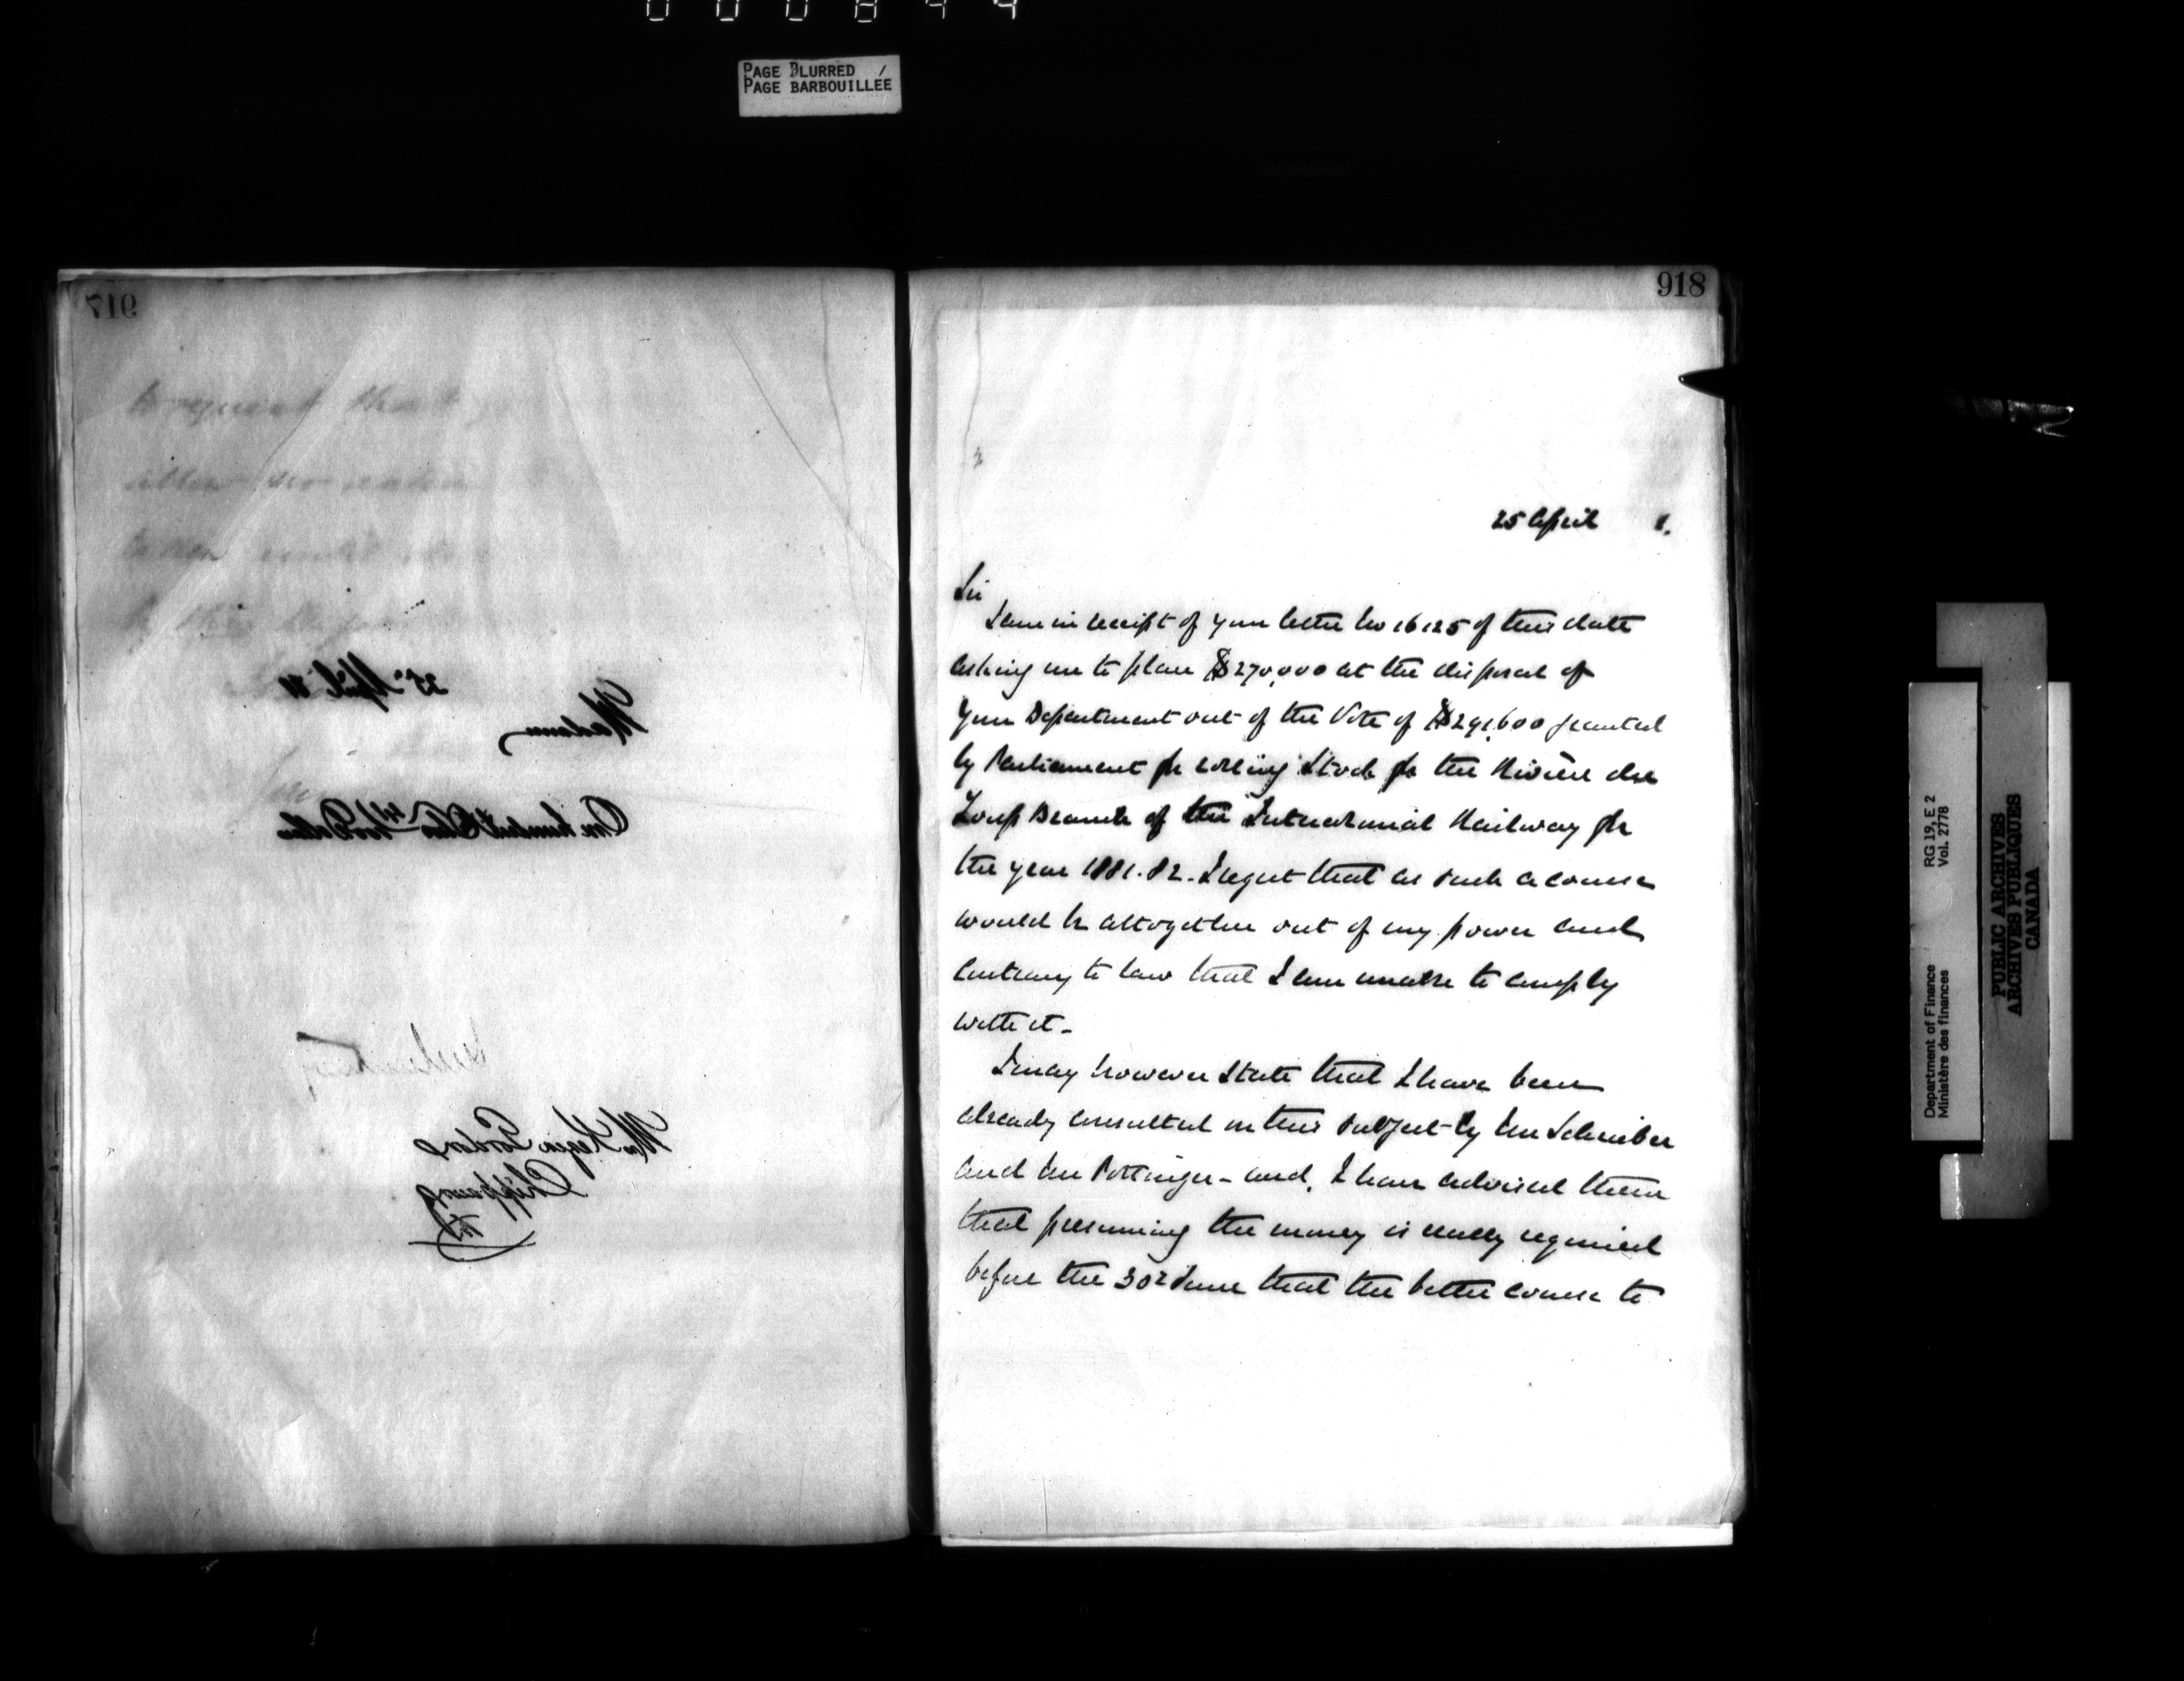 000844
PAGE BLURRED /
PAGE BARBOUILLEE
917
to request that
25th April 81
Madam
One hundred 44/100 Dollars
Mrs Keziah Gordon
Chippawa
918
25 April 1.
Sir
I am in receipt of your letter No 16125 of this date
asking me to place $270,000 at the disposal of
your Department out of the Vote of $291,600 granted
by Parliament for rolling Stock for the Rivière du
Loup Branch of the Intercolonial Railway for
the year 1881.82. I regret that as such a course
would be altogether out of my power and
contrary to law that I am unable to comply
with it –
I may however state that I have been
already consulted on this subject by Mr Schreiber
and Mr Pottinger – and, I have advised them
that presuming the money is really required
before the 30th June that the better course to
Department of Finance RG 19, E 2
Ministère des finances Vol. 2778
PUBLIC ARCHIVES
ARCHIVES PUBLIQUES
CANADA